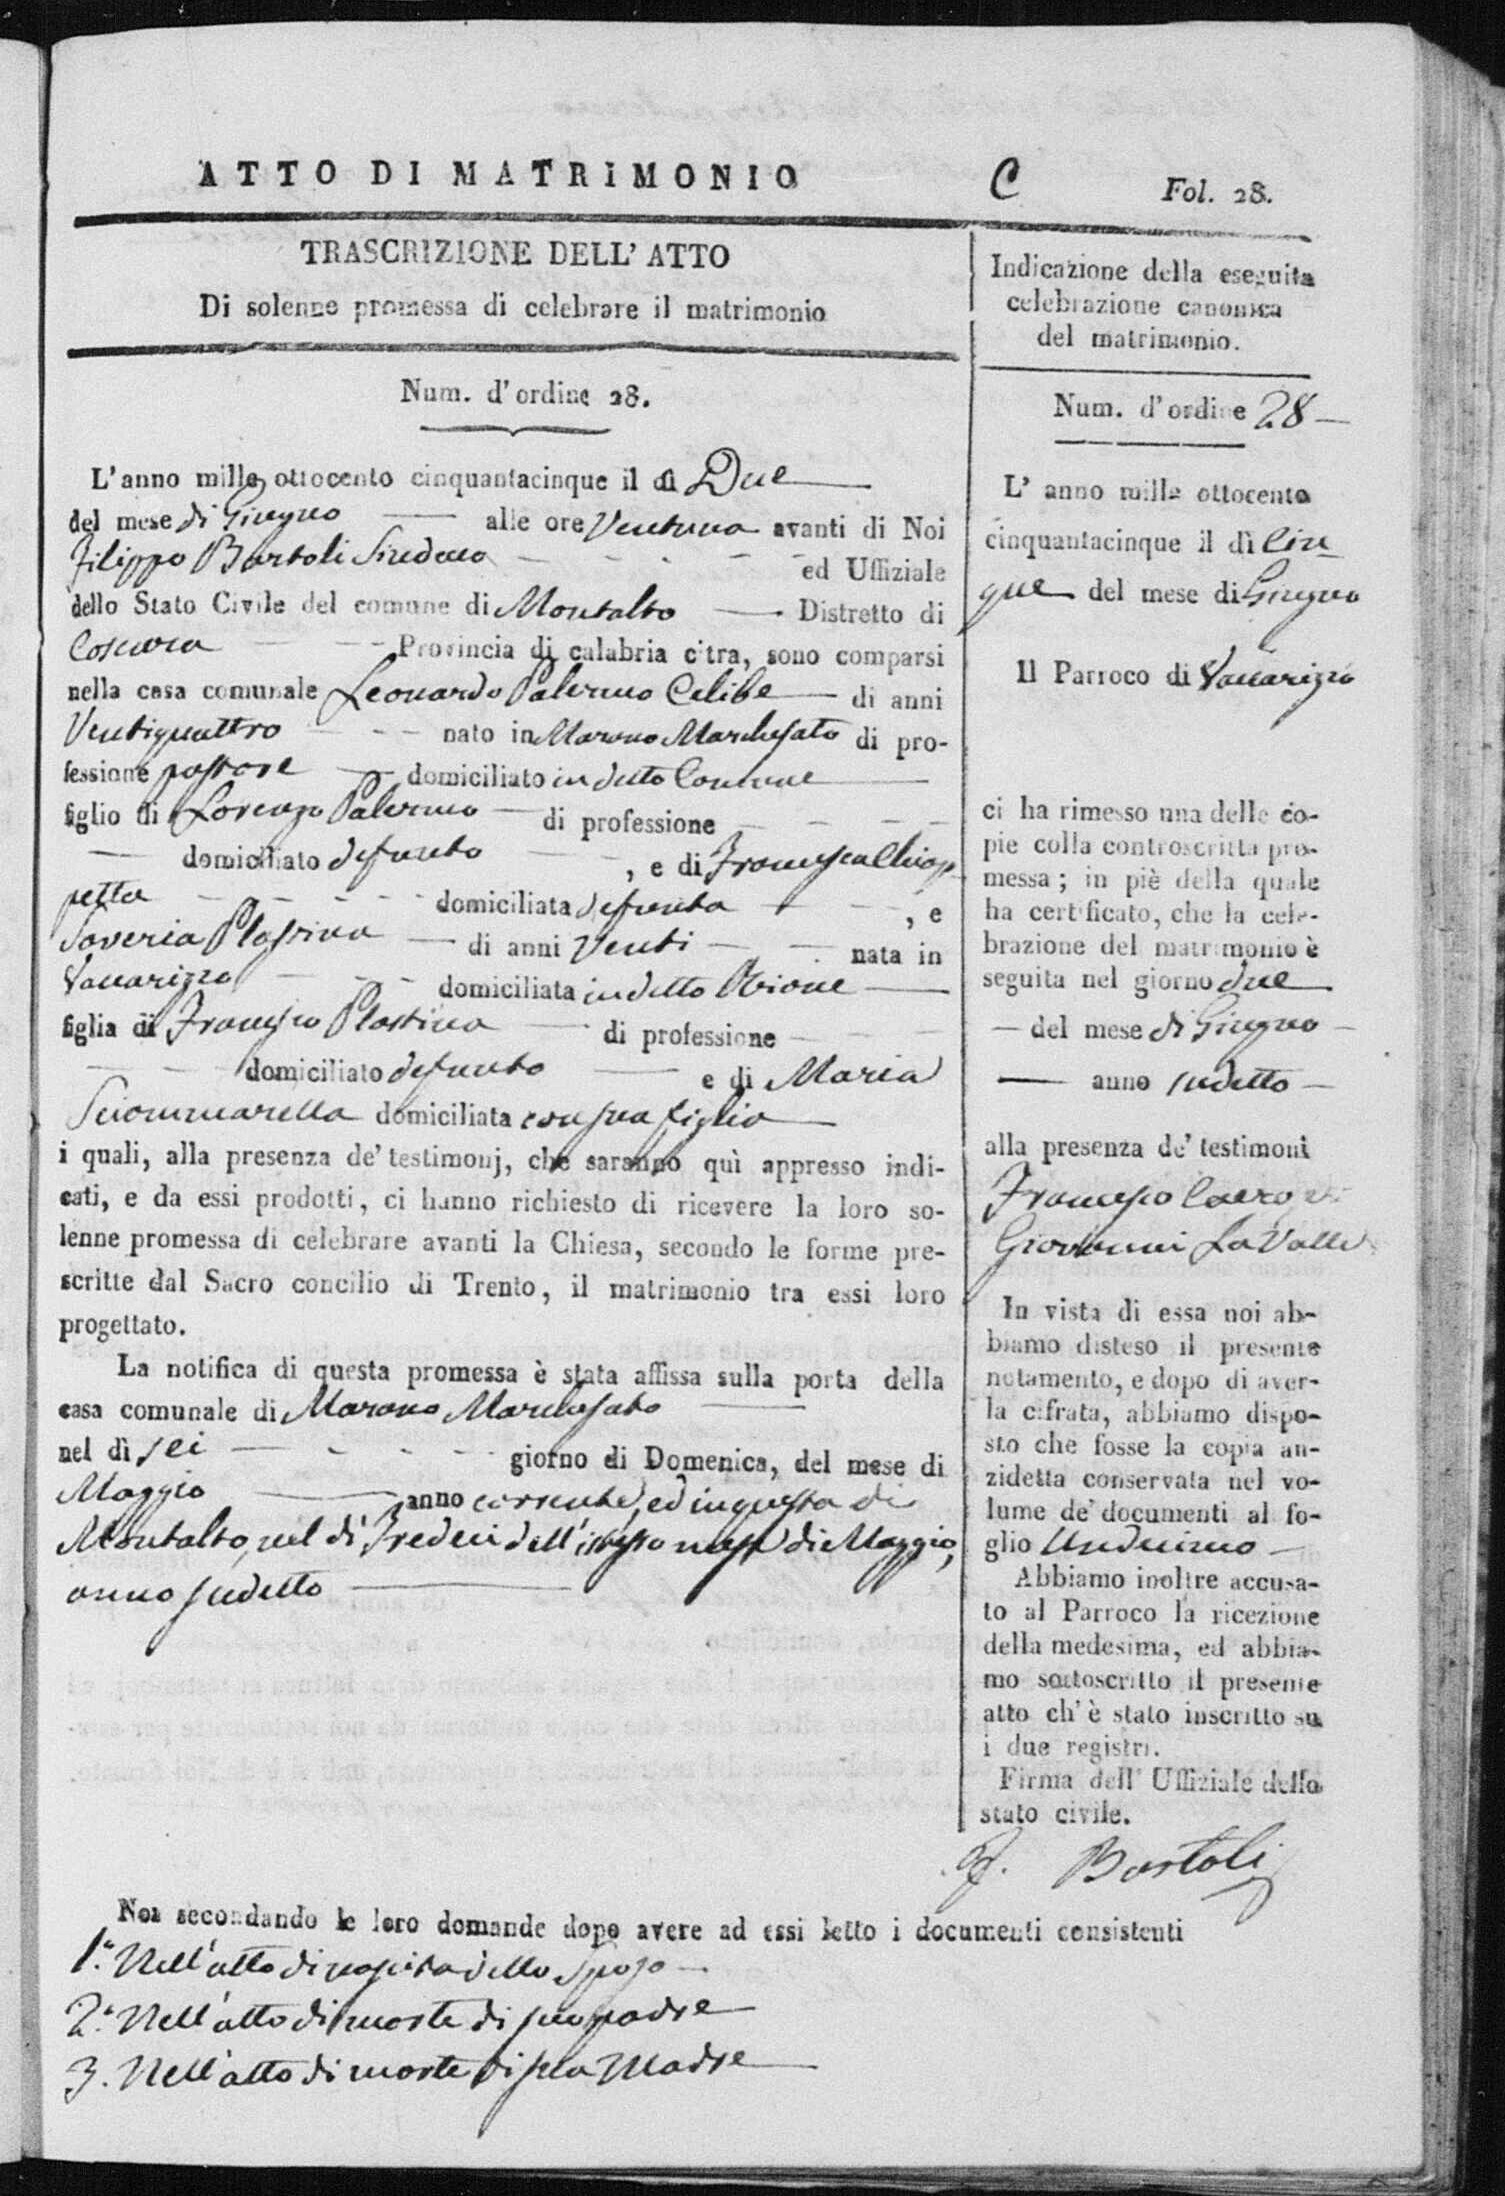 ATTO DI MATRIMONIO C Fol. 28.
TRASCRIZIONE DELL' ATTO
Di solenne promessa di celebrare il matrimonio
Num. d'ordine 28.
L'anno mille ottocento cinquantacinque il dì Due
del mese di Giugno alle ore Ventuna avanti di Noi
Filippo Bartoli Sindaco ed Uffiziale
dello Stato Civile del comune di Montalto Distretto di
Cosenza Provincia di calabria citra, sono comparsi
nella casa comunale Leonardo Palermo Celibe di anni
Ventiquattro nato in Marano Marchesato di pro-
fessione pastore domiciliato in detto Comune
figlio di Lorenzo Palermo di professione
domiciliato defunto , e di Francesca Chiap
petta domiciliata defunta , e
Saveria Plastina di anni Venti nata in
Vaccarizzo domiciliata in detto Rione
figlia di Francesco Plastina di professione
domiciliato defunto e di Maria
Sciommarella domiciliata con sua figlia
i quali, alla presenza de' testimonj, che saranno quì appresso indi-
cati, e da essi prodotti, ci hanno richiesto di ricevere la loro so-
lenne promessa di celebrare avanti la Chiesa, secondo le forme pre-
scritte dal Sacro concilio di Trento, il matrimonio tra essi loro
progettato.
La notifica di questa promessa è stata affissa sulla porta della
casa comunale di Marano Marchesato
nel dì sei giorno di Domenica, del mese di
Maggio anno corrente, ed in questa di
Montalto, nel dì Tredeci dell'istesso mese di Maggio,
anno sudetto
Indicazione della eseguita
celebrazione canonica
del matrimonio.
Num. d'ordine 28
L' anno mille ottocento
cinquantacinque il dì Cin
que del mese di Giugno
Il Parroco di Vaccarizzo
ci ha rimesso una delle co-
pie colla controscritta pro-
messa; in piè della quale
ha certificato, che la cele-
brazione del matrimonio è
seguita nel giorno due
del mese di Giugno
anno sudetto
alla presenza de' testimoni
Francesco
Giovanni La Valle
In vista di essa noi ab-
biamo disteso il presente
notamento, e dopo di aver-
la cifrata, abbiamo dispo-
sto che fosse la copia an-
zidetta conservata nel vo-
lume de' documenti al fo-
glio Undecimo
Abbiamo inoltre accusa-
to al Parroco la ricezione
della medesima, ed abbia-
mo sottoscritto il presente
atto ch' è stato inscritto su
i due registri.
Firma dell' Uffiziale dello
stato civile.
F. Bartoli
Noi secondando le loro domande dopo avere ad essi letto i documenti consistenti
1.° Nell'atto di nascita dello Sposo
2.° Nell'atto di morte di suo padre
3. Nell'atto di morte di sua Madre